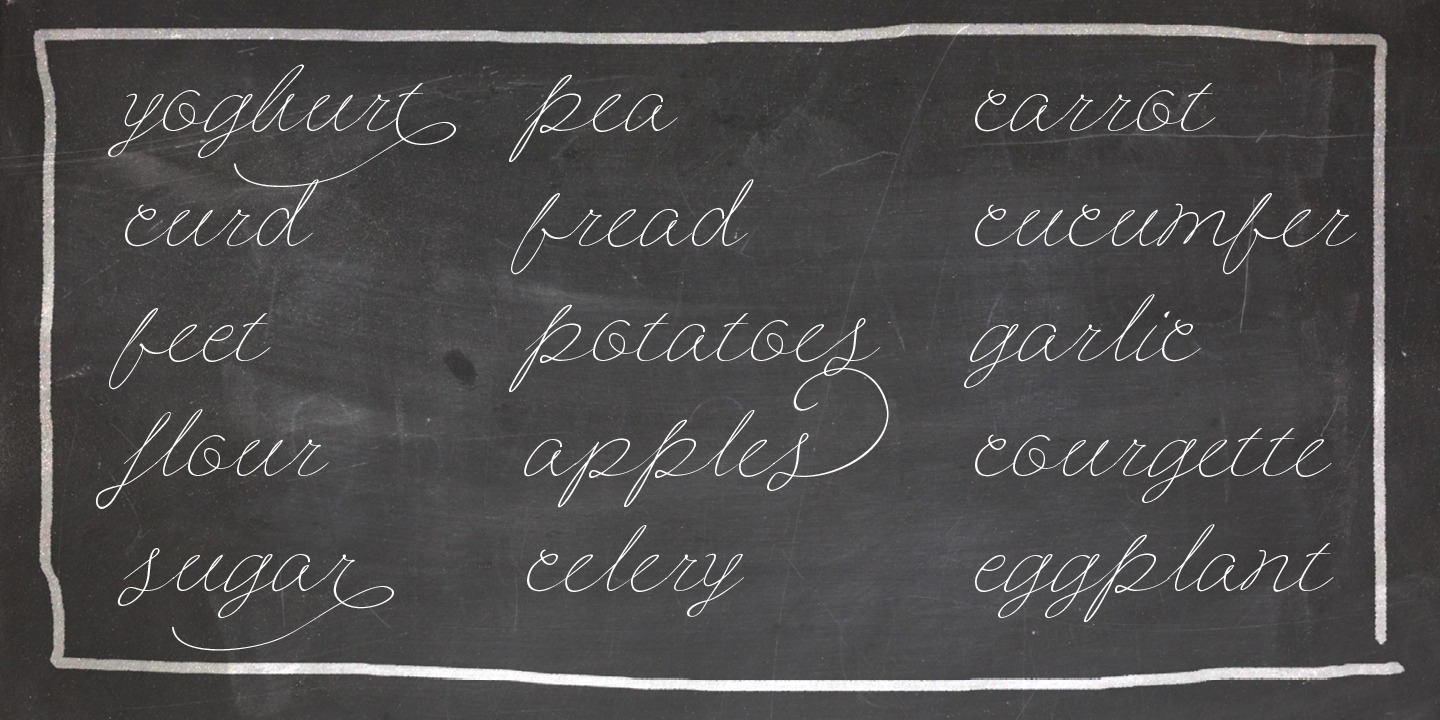 yoghurt
curd
beet
flour
sugar
pea
bread
potatoes
apples
celery
carrot
cucumber
garlic
courgette
eggplant